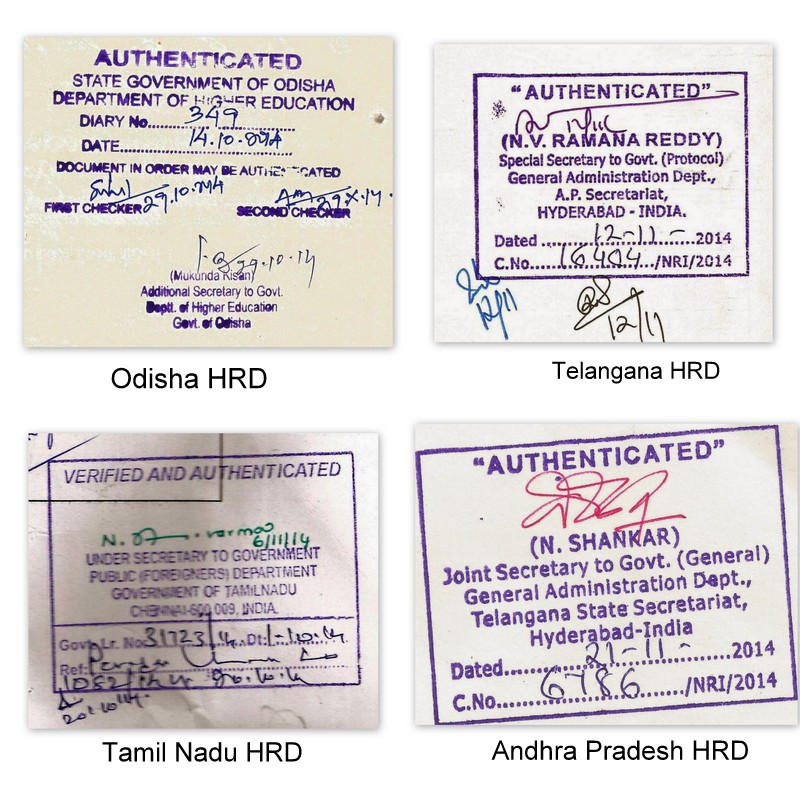 AUTHENTICATED
STATE GOVERNMENT OF ODISHA
DEPARTMENT OF HIGHER EDUCATION
DIARY No. 349
DATE 14.10.
DOCUMENT IN ORDER MAY BE AUTHENTICATED
29.10.
FIRST CHECKER
SECOND CHECKER
29.10.14
(Mukunda Kisan)
Additional Secretary to Govt.
Deptt. of Higher Education
Govt. of Odisha
Odisha HRD
"AUTHENTICATED"
12/11
(N.V. RAMANA REDDY)
Special Secretary to Govt. (Protocol)
General Administration Dept.,
A.P. Secretariat,
HYDERABAD - INDIA.
Dated 12-11- 2014
C.No. 16404 /NRI/2014
12/11
12/11
Telangana HRD
VERIFIED AND AUTHENTICATED
6/11/14
UNDER SECRETARY TO GOVERNMENT
PUBLIC (FOREIGNERS) DEPARTMENT
GOVERNMENT OF TAMILNADU
CHENNAI-600 009, INDIA.
Govt. Lr. No. 31723 Dt:
Ref:
Tamil Nadu HRD
"AUTHENTICATED"
(N. SHANKAR)
Joint Secretary to Govt. (General)
General Administration Dept.,
Telangana State Secretariat,
Hyderabad-India
Dated 21-11- 2014
C.No. 6786 /NRI/2014
Andhra Pradesh HRD